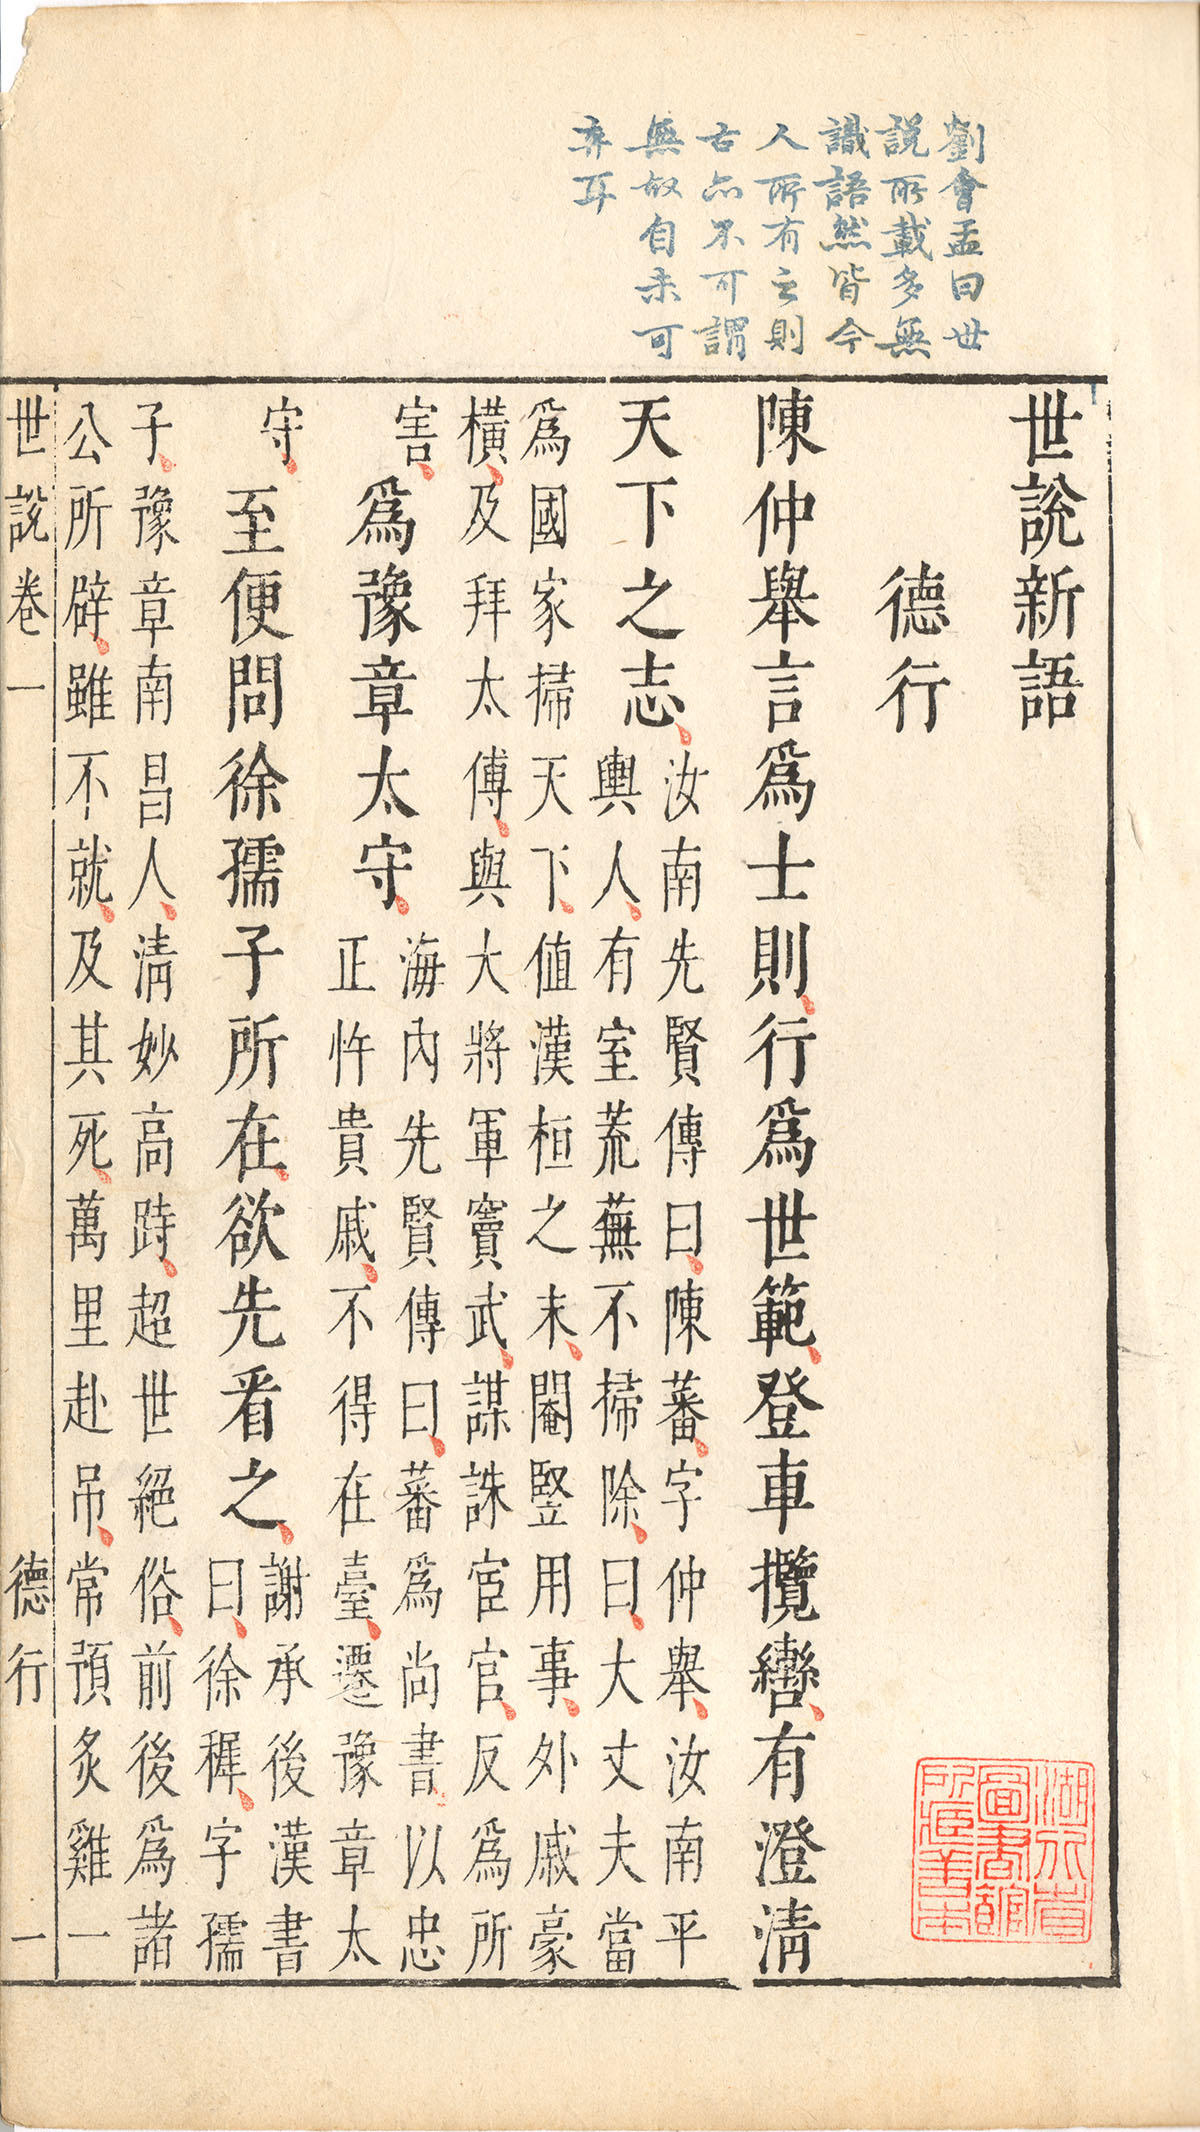 劉會孟曰世
說所載多無
識語然皆今
人所有之則
古亦不可謂
無故自未可
弃耳
世說新語
德行
陳仲舉言爲士則行爲世範登車攬轡有澄清
天下之志
汝南先賢傳曰陳蕃字仲舉汝南平
輿人有室荒蕪不掃除曰大丈夫當
爲國家掃天下值漢桓之末閹豎用事外戚豪
橫及拜太傅與大將軍竇武謀誅宦官反爲所
害
爲豫章太守
海內先賢傳曰蕃爲尚書以忠
正忤貴戚不得在臺遷豫章太
守
至便問徐孺子所在欲先看之
謝承後漢書
曰徐穉字孺
子豫章南昌人清妙高跱超世絕俗前後爲諸
公所辟雖不就及其死萬里赴吊常預炙雞一
世說卷一 德行 一
湖北省
圖書館
所藏善本